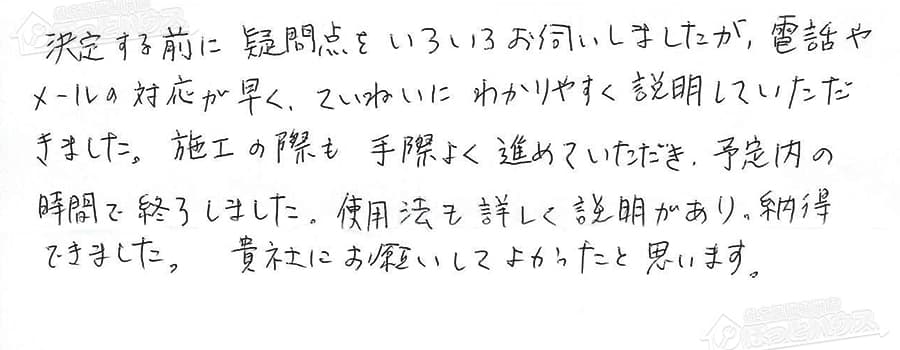 決定する前に疑問点をいろいろお伺いしましたが、電話や
メールの対応が早く、ていねいにわかりやすく説明していただ
きました。施工の際も手際よく進めていただき、予定内の
時間で終了しました。使用法も詳しく説明があり。納得
できました。 貴社にお願いしてよかったと思います。